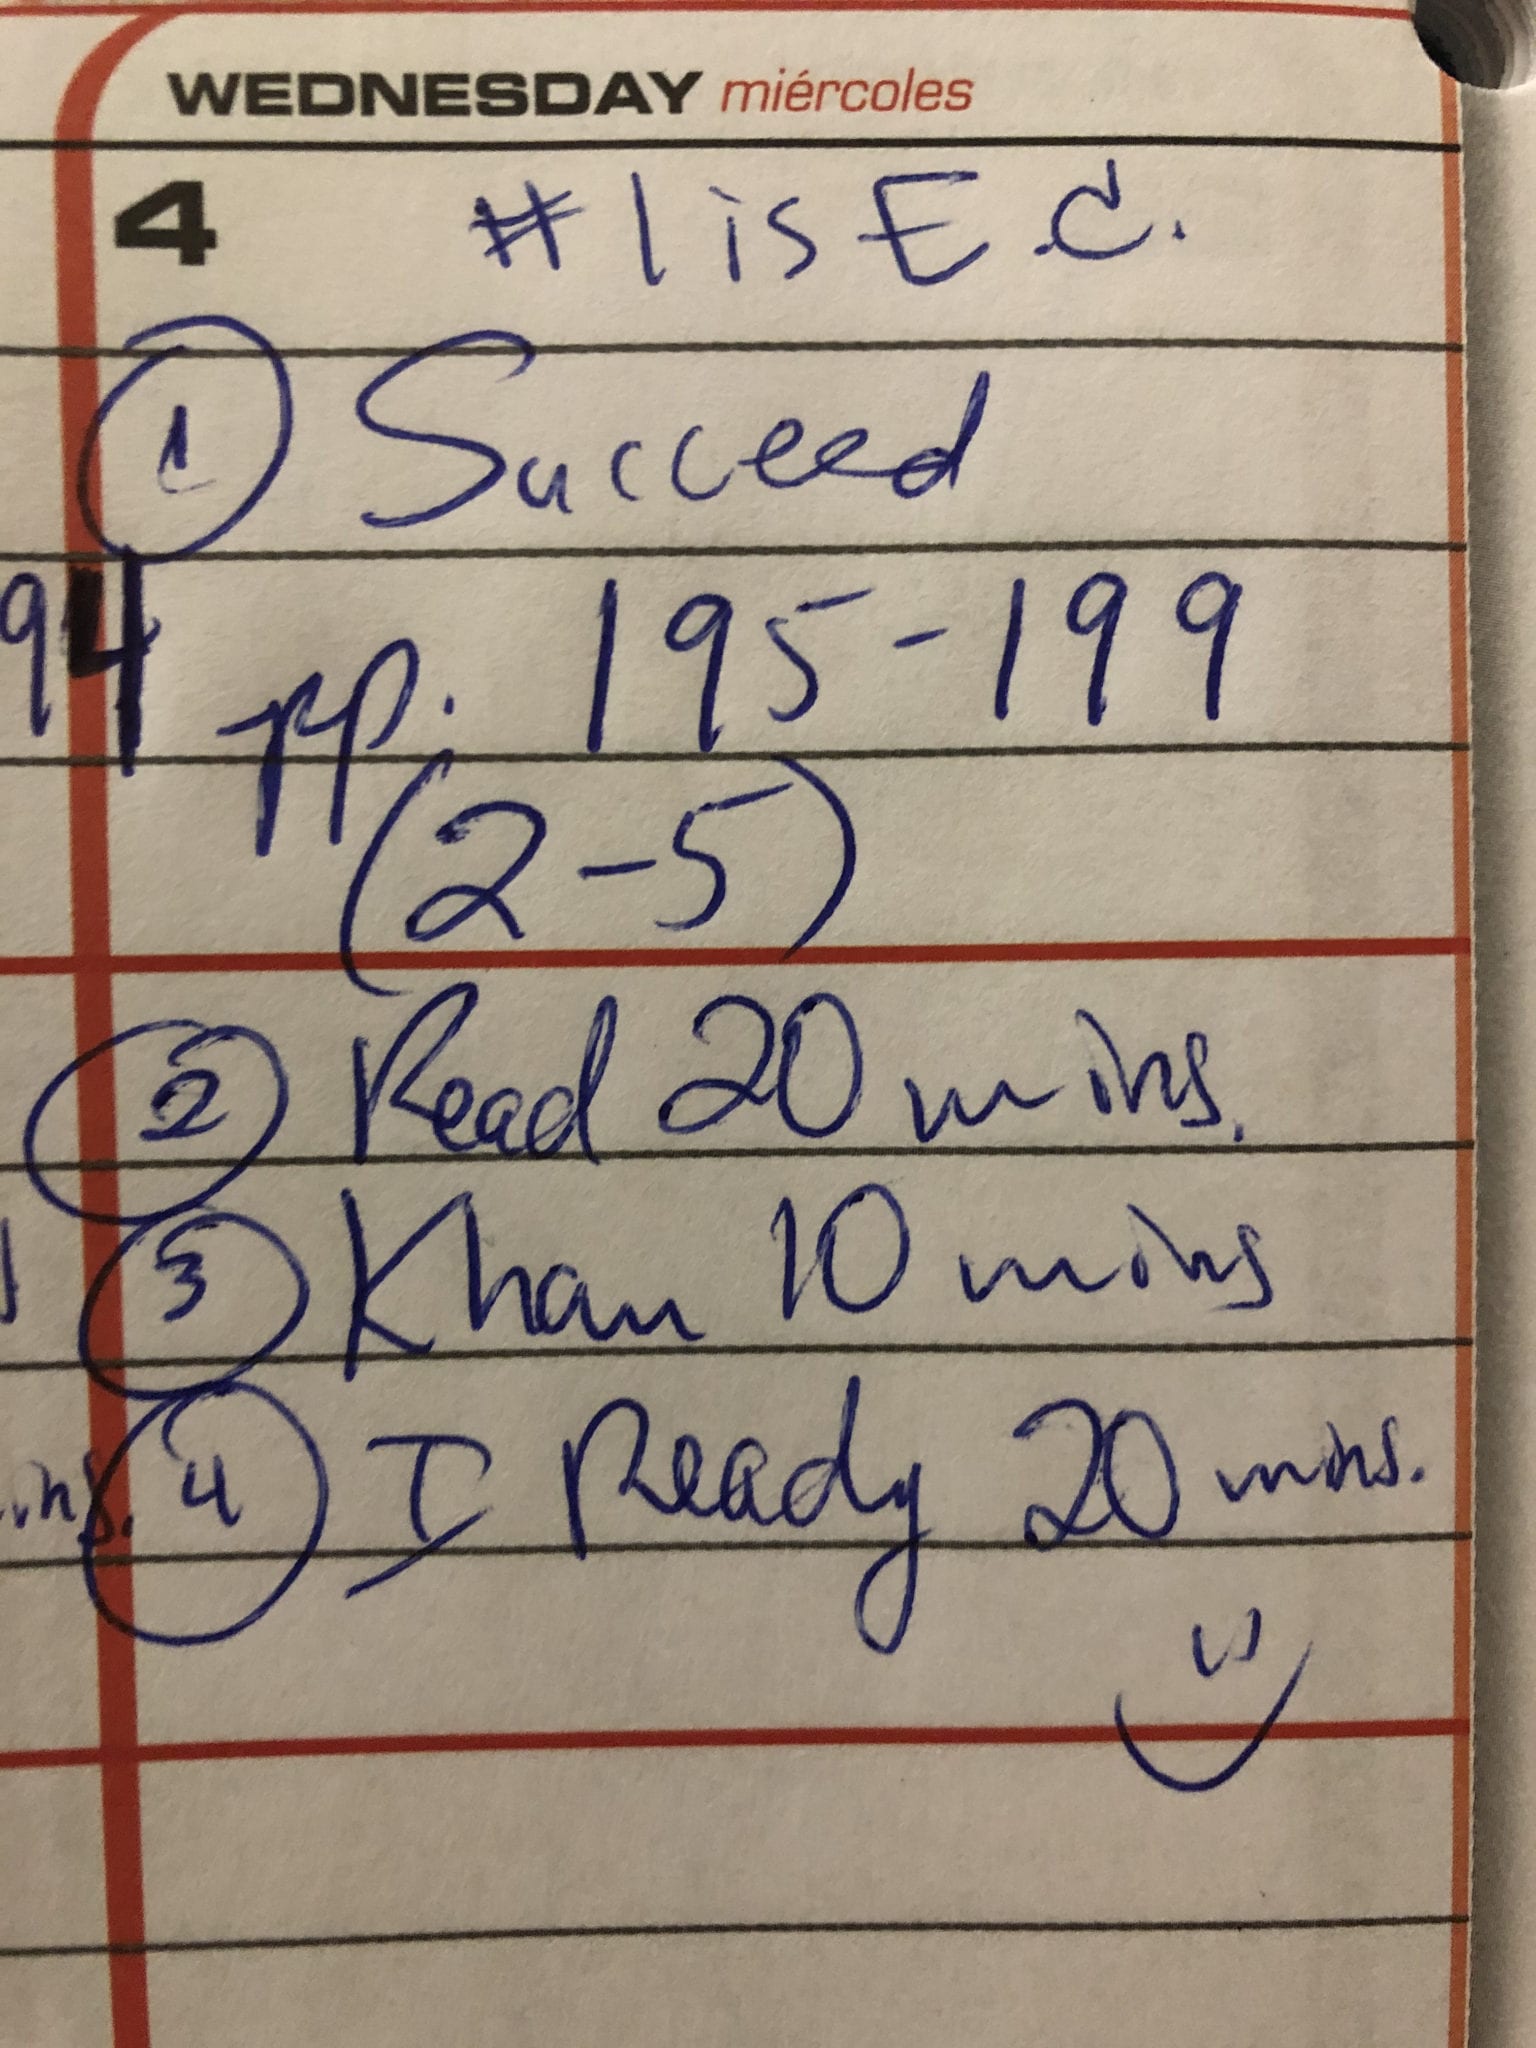 WEDNESDAY miércoles
4 #1 is E.C.
1 Succeed
94 pp. 195-199
(2-5)
2 Read 20 mins.
3 Khan 10 mins
4 I Ready 20 mins.